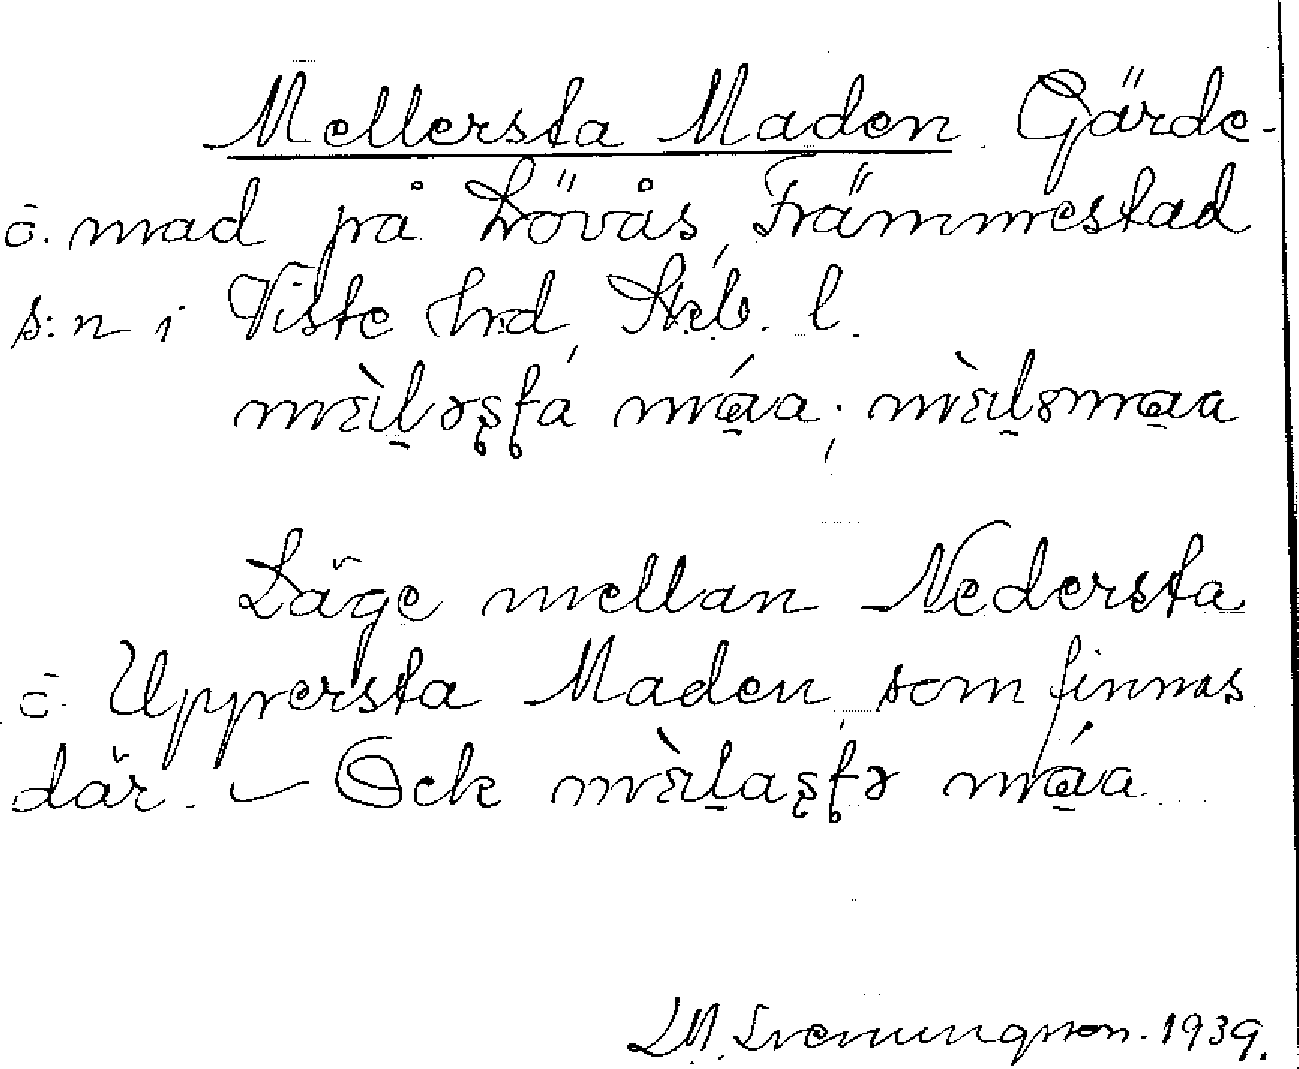 Mellersta Maden Gärde-
o. mad på Lövås, Främmestad
s:n i Viste hrd, Skb. l.
mɛ̀lərsta máa; mɛ̀ləmaa
Läge mellan Nedersta
o. Uppersta Maden, som finnas
där. – Ock mɛ̀lastə máa
LM. Svenungsson. 1939.